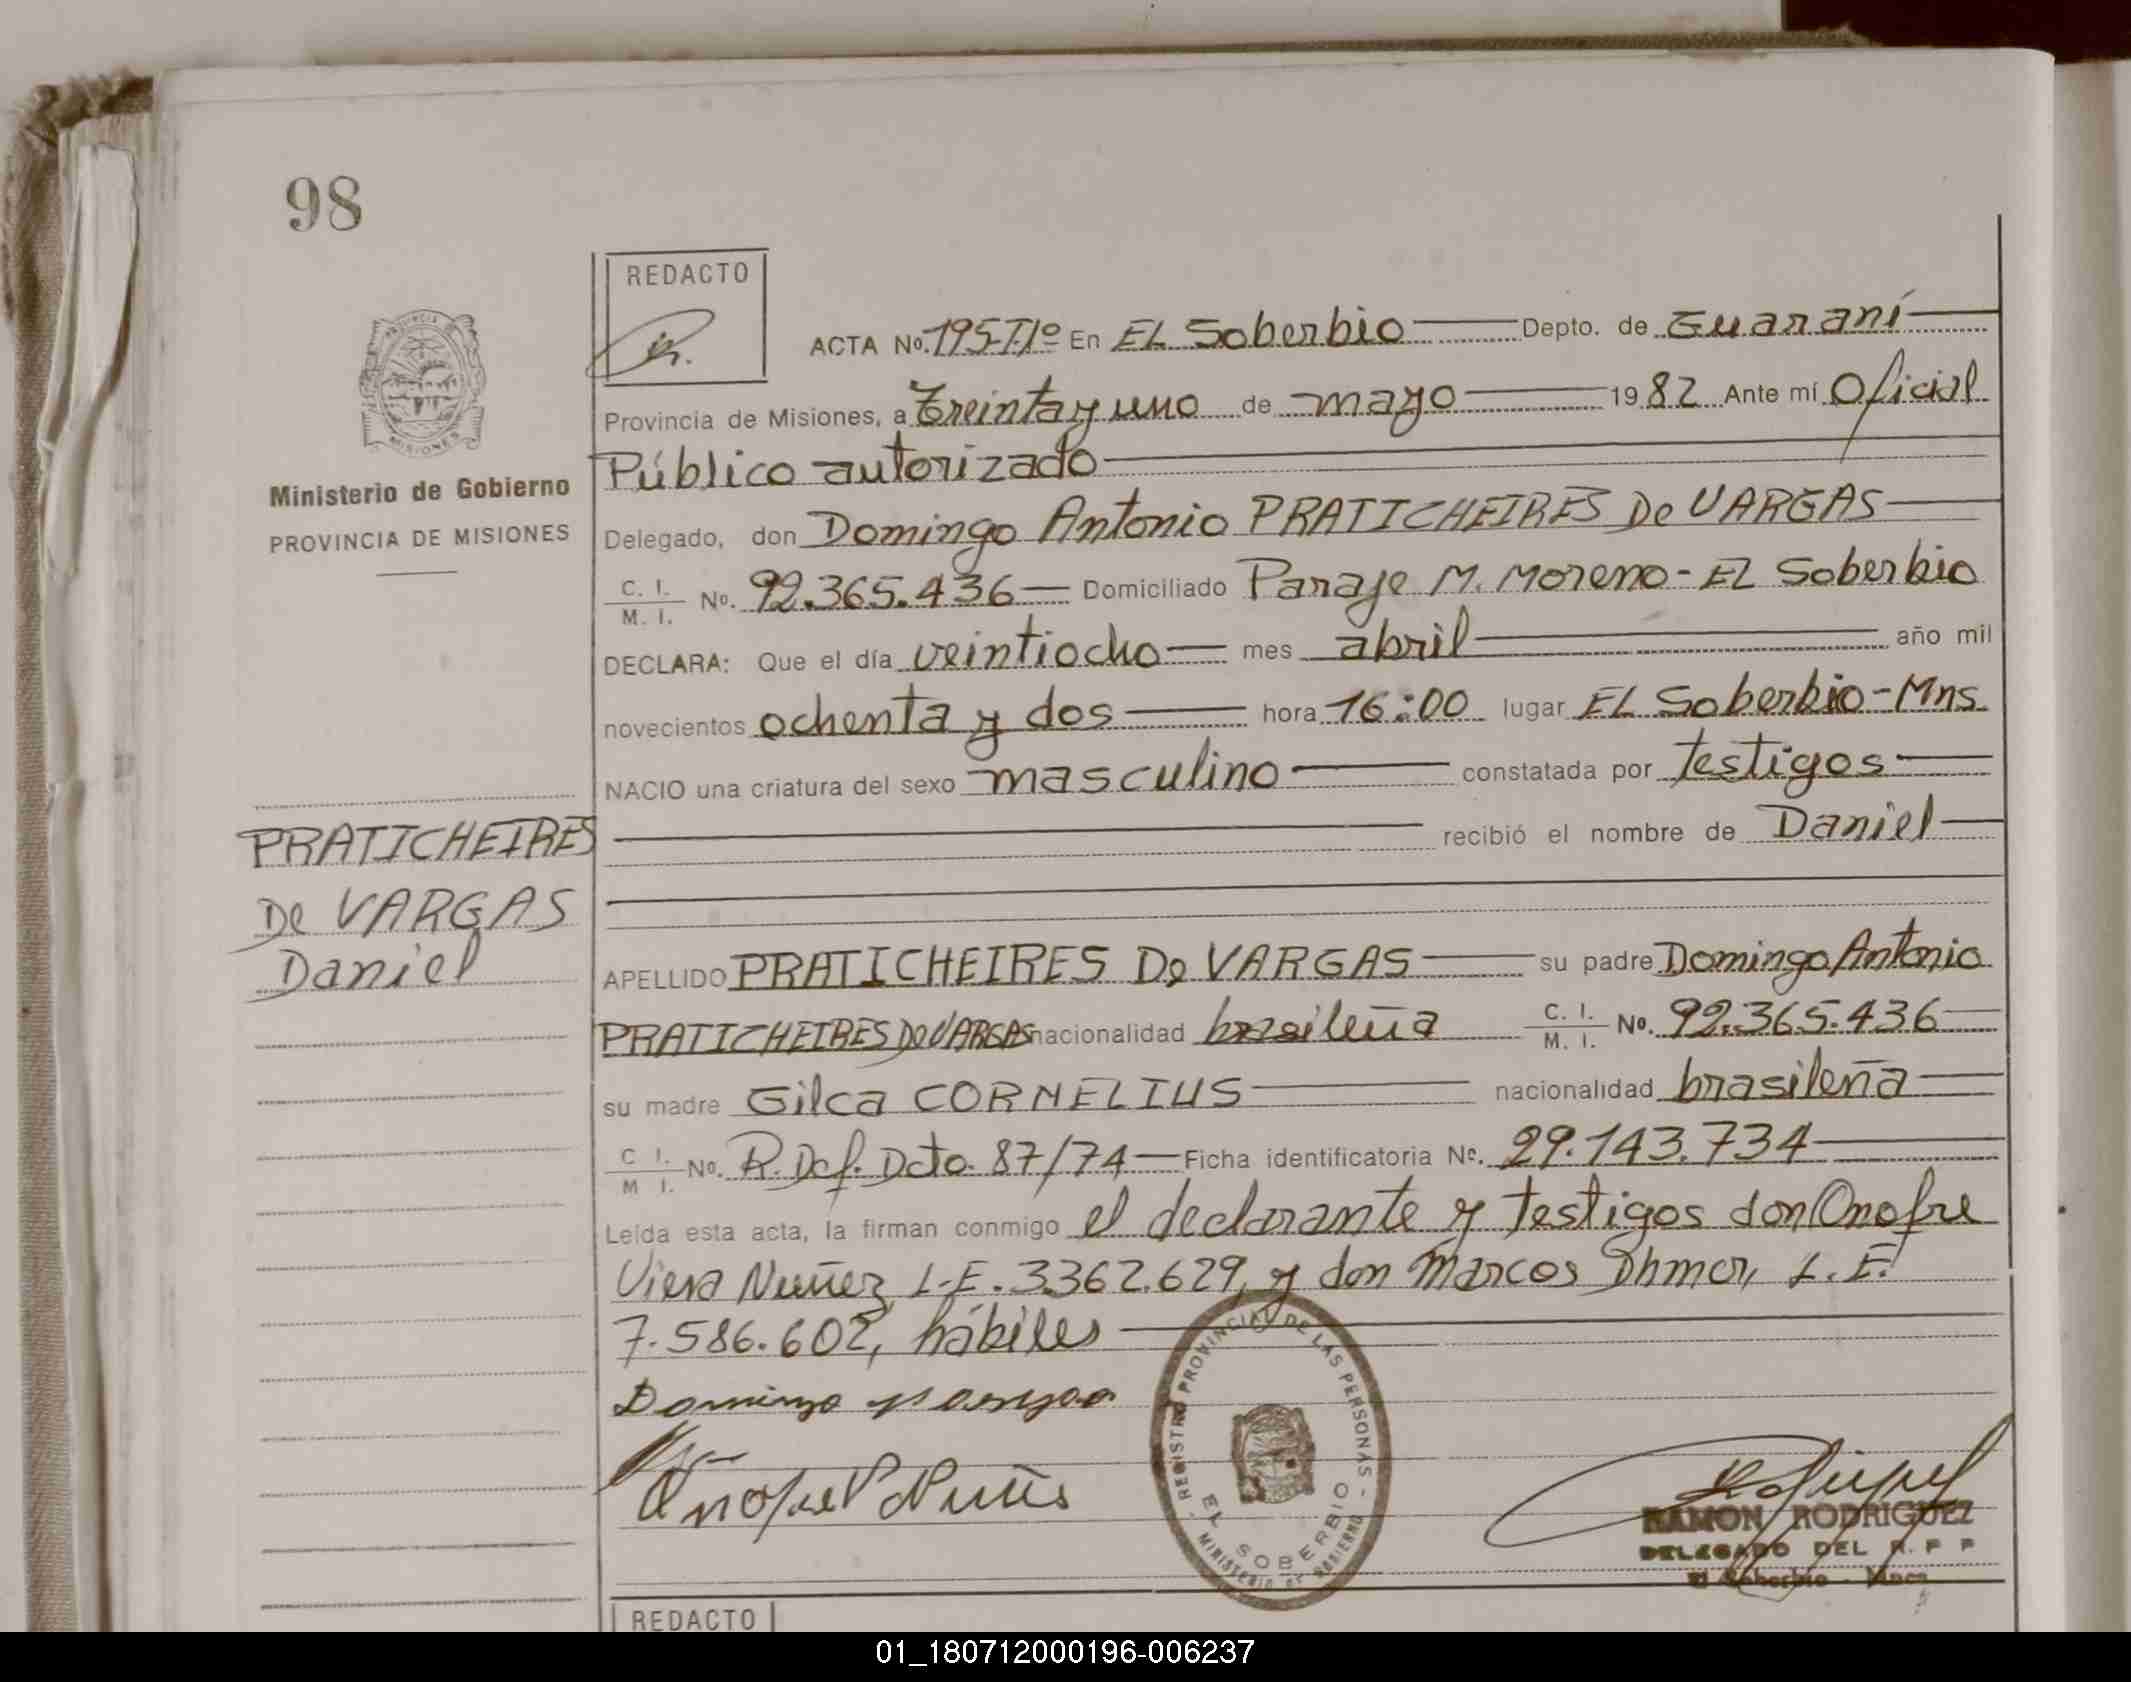 98
REDACTO
PROVINCIA
MISIONES
ACTA No. 195-T.1º En EL Soberbio Depto. de Guaraní
Provincia de Misiones, a treinta y uno de mayo 1982 Ante mí Oficial
Público autorizado
Ministerio de Gobierno
PROVINCIA DE MISIONES
Delegado, don Domingo Antonio PRATICHEIRES De VARGAS
C. I. M. I. No. 92.365.436 Domiciliado Paraje M. Moreno - EL Soberbio
DECLARA: Que el día veintiocho mes abril año mil
novecientos ochenta y dos hora 16:00 lugar EL Soberbio - Mns.
NACIO una criatura del sexo masculino constatada por testigos
recibió el nombre de Daniel
PRATICHEIRES
De VARGAS
Daniel
APELLIDO PRATICHEIRES De VARGAS su padre Domingo Antonio
PRATICHEIRES De VARGAS nacionalidad brasileña C. I. M. I. No. 92.365.436
su madre Gilca CORNELIUS nacionalidad brasileña
C I. M I. No. R. Def. Dcto. 87/74 Ficha identificatoria No. 29.143.734
Leída esta acta, la firman conmigo el declarante y testigos don Onofre
Viera Nuñez, L.E. 3.362.629, y don Marcos Dhmer, L.E.
7.586.602, hábiles
Domingo Vargas
REGISTRO PROVINCIAL DE LAS PERSONAS
EL SOBERBIO
MINISTERIO DE GOBIERNO
RAMON RODRIGUEZ
DELEGADO DEL R. P P
El Soberbio - Mnes
REDACTO
01_180712000196-006237